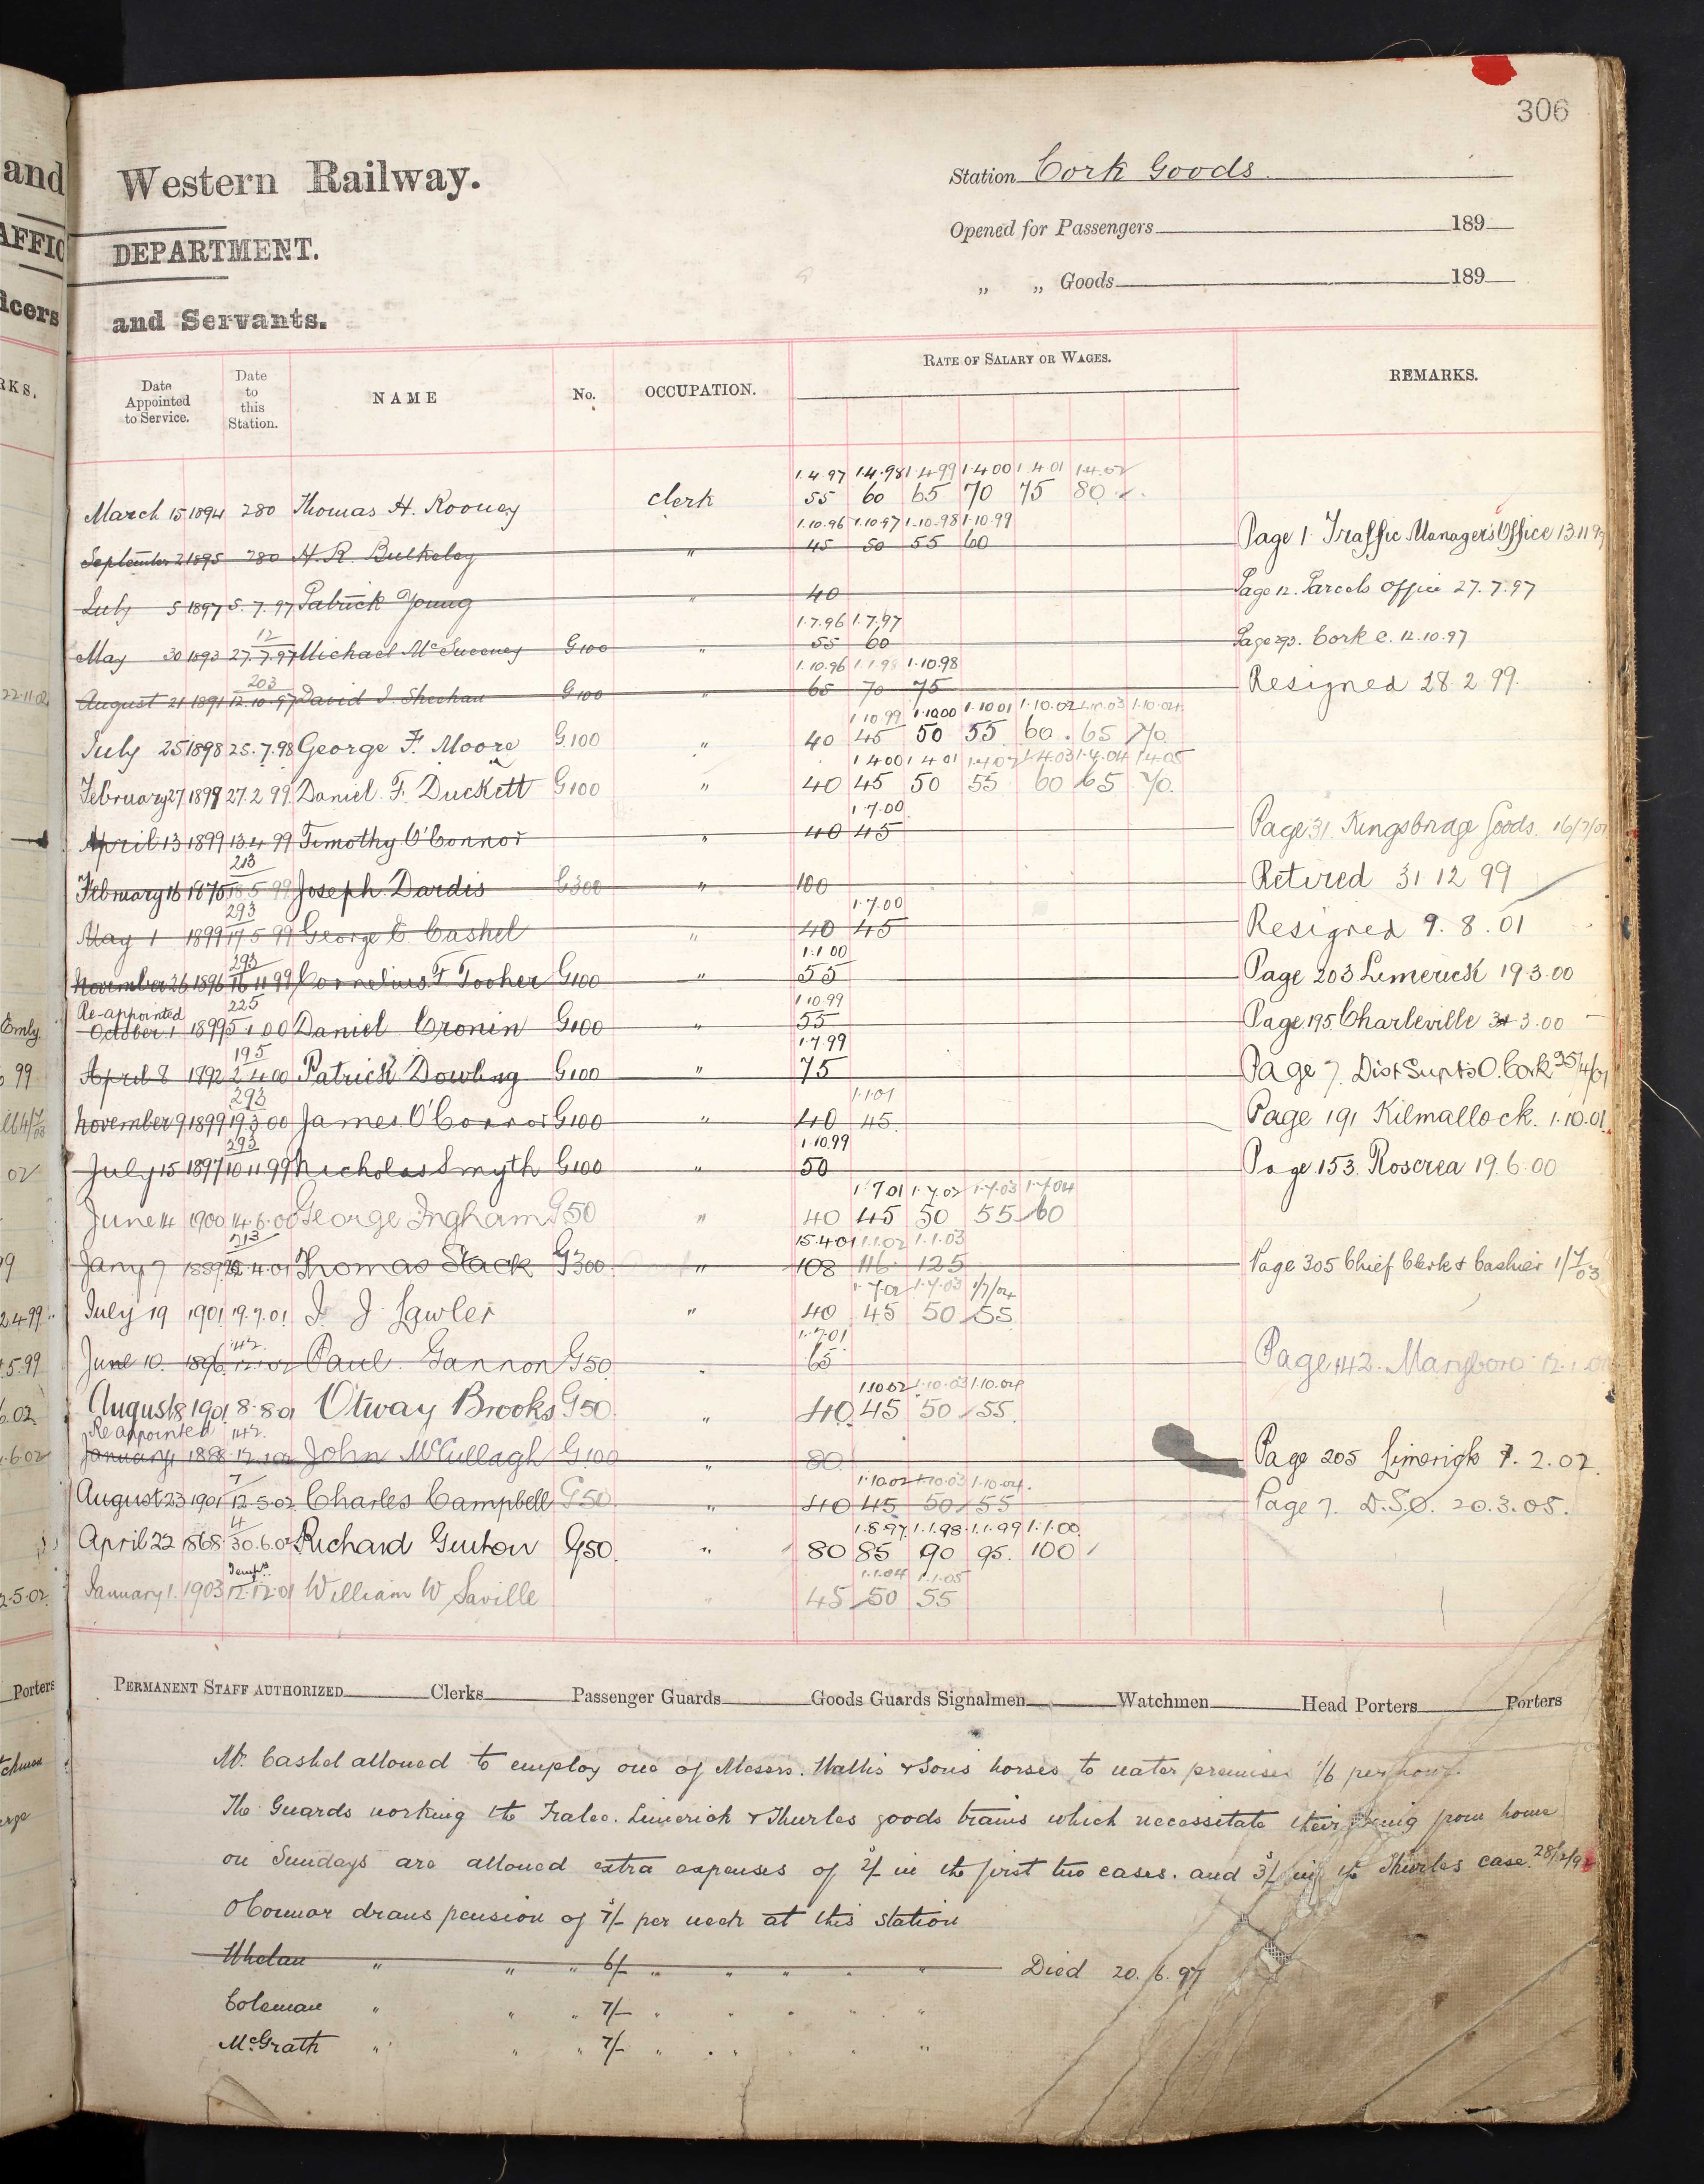 306
and
Western Railway.
Station Cork Goods
AFFIC
DEPARTMENT.
Opened for Passengers 189
„ „ Goods 189
icers
and Servants.
RKS.
Date Appointed to Service.
Date to this Station.
NAME
No.
OCCUPATION.
RATE OF SALARY OR WAGES.
REMARKS.
1.4.97 1.4.98 1.4.99 1.4.00 1.4.01 1.4.02
March 15 1894 280 Thomas H. Rooney clerk 55 60 65 70 75 80
1.10.96 1.10.97 1.10.98 1.10.99
September 2 1895 280 H. R. Bulkeley " 45 50 55 60 Page 1 Traffic Manager's Office 13.11.99
July 5 1897 5.7.97 Patrick Young " 40 Page 12. Parcels Office 27.7.97
12 1.7.96 1.7.97
May 30 1893 27.7.97 Michael McSweeney G100 " 55 60 Page 293. Cork C. 12.10.97
203 1.10.96 1.1.98 1.10.98
22.11.02 August 21 1891 12.10.97 David J. Sheehan G100 " 65 70 75 Resigned 28.2.99.
1.10.99 1.10.00 1.10.01 1.10.02 1.10.03 1.10.04
July 25 1898 25.7.98 George F. Moore G.100 " 40 45 50 55 60 65 70
1.4.00 1.4.01 1.4.02 1.4.03 1.4.04 1.4.05
February 27 1899 27.2.99 Daniel F. Duckett G100 " 40 45 50 55 60 65 70.
1.7.00
April 13 1899 13.4.99 Timothy O'Connor " 40 45 Page 31. Kingsbridge Goods.
213
February 16 1875 18.5.99 Joseph Dardis G300 " 100 Retired 31 12 99
293 1.7.00
May 1 1899 17.5.99 George E. Cashel " 40 45 Resigned 9.8.01
293 1.1.00
November 26 1896 16 11 99 Cornelius T Tooher G100 " 55 Page 203 Limerick 19.3.00
Re-appointed 225 1.10.99
Emly October 1 1899 5.1.00 Daniel Cronin G100 " 55 Page 195 Charleville 3.00
195 1.7.99
99 April 8 1892 2.4.00 Patrick Dowling G100 " 75 Page 7. Dist Supts O. Cork 25/4/01
293 1.1.01
November 9 1899 19.3.00 James O'Connor G100 " 40 45 Page 191 Kilmallock. 1.10.01
293 1.10.99
02 July 15 1897 10 11 99 Nicholas Smyth G100 " 50 Page 153. Roscrea 19.6.00
1.7.01 1.7.02 1.7.03 1.7.04
June 14 1900 14.6.00 George Ingham G50 " 40 45 50 55 60
213 15.4.01 1.1.02 1.1.03
9 Jany 7 1889 4.01 Thomas Stack G300 " 108 116 125 Page 305 Chief Clerk & Cashier 1/7/03
1.7.02 1.7.03 1/7/04
2.4.99 July 19 1901 19.7.01 J. J. Lawler " 40 45 50 55
142. 1.7.01
5.99 June 10. 1896 12.1.02 Paul Gannon G50 " 65 Page 142. Maryboro 12.1.02
1.10.02 1.10.03 1.10.04
6.02 August 8 1901 8.8.01 Otway Brooks G50. " 40 45 50 55.
Re appointed 142.
6.02 January 1 1898 12.1.02 John McCullagh G.100 " 80 Page 205 Limerick 7.2.02.
7 1.10.02 1.10.03 1.10.04.
August 23 1901 12.5.02 Charles Campbell G50. " 40 45 50 55 Page 7. D.S.O. 20.3.05.
4 1.8.97 1.1.98 1.1.99 1.1.00
April 22 1868 30.6.02 Richard Gurton G50. " 80 85 90 95. 100
Tempy. 1.1.04 1.1.05
2.5.02 January 1. 1903 12.12.01 William W Saville " 45 50 55
Porters
PERMANENT STAFF AUTHORIZED Clerks Passenger Guards Goods Guards Signalmen Watchmen Head Porters Porters
Mr. Cashel allowed to employ one of Messrs. Wallis & Sons horses to water premises 1/6 per hour.
The Guards working the Tralee. Limerick & Thurles goods trains which necessitate their being from home
on Sundays are allowed extra expenses of 2/ in the first two cases. and 3/ in the Thurles case.
O'Connor draws pension of 7/- per week at this station
Whelan " " " 6/- " " " " " Died 20.6.97
Coleman " " " 7/- " " " " "
McGrath " " " 7/- " " " " "